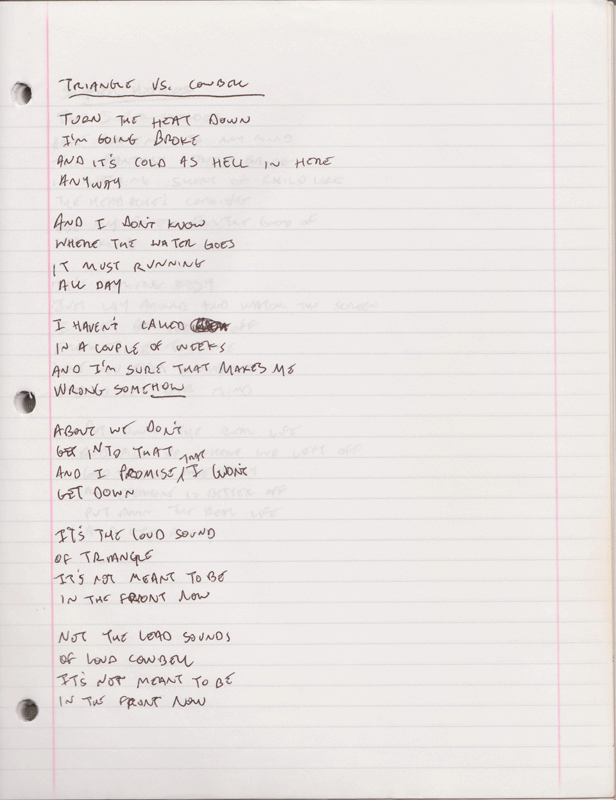 TRIANGLE VS. COWBELL
TURN THE HEAT DOWN
I'M GOING BROKE
AND IT'S COLD AS HELL IN HERE
ANYWAY
AND I DON'T KNOW
WHERE THE WATER GOES
IT MUST RUNNING
ALL DAY
I HAVEN'T CALLED
IN A COUPLE OF WEEKS
AND I'M SURE THAT MAKES ME
WRONG SOMEHOW
ABOUT WE DON'T
GET INTO THAT
AND I PROMISE THAT I WON'T
GET DOWN
IT'S THE LOUD SOUND
OF TRIANGLE
IT'S NOT MEANT TO BE
IN THE FRONT NOW
NOT THE LEAD SOUNDS
OF LOUD COWBELL
IT'S NOT MEANT TO BE
IN THE FRONT NOW